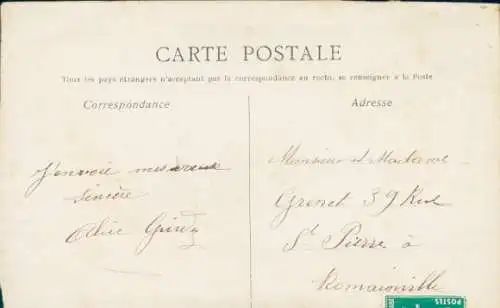 CARTE POSTALE
Tous les pays étrangers n'acceptant pas la correspondance au recto, se renseigner à la Poste
Correspondance
Adresse
J'envoie mes vœux
Sincère
Alice
Monsieur et Madame
Grenet 39 Rue
St Pierre à
Romainville
POSTES